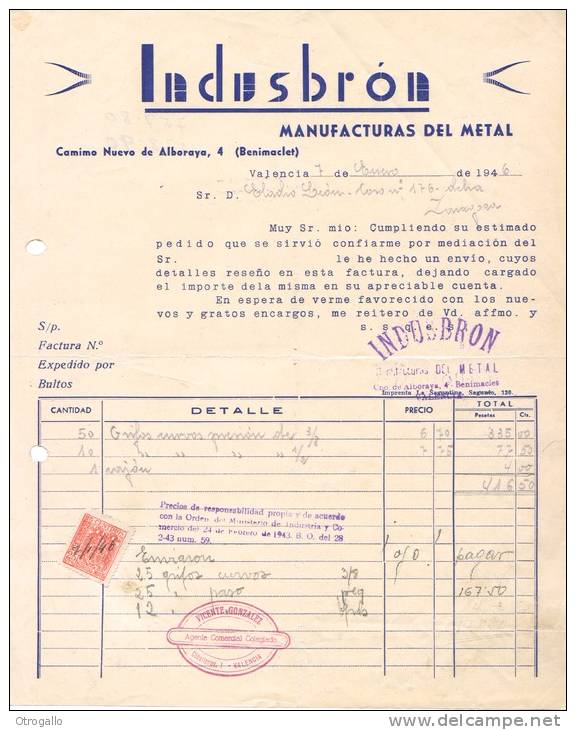 Indusbrón
MANUFACTURAS DEL METAL
Camimo Nuevo de Alboraya, 4 (Benimaclet)
Valencia 7 de Enero de 1946
Sr. D. Eladio León - Coso nº 176 - dcha
Zaragoza
Muy Sr. mio: Cumpliendo su estimado
pedido que se sirvió confiarme por mediación del
Sr. le he hecho un envío, cuyos
detalles reseño en esta factura, dejando cargado
el importe dela misma en su apreciable cuenta.
En espera de verme favorecido con los nue-
vos y gratos encargos, me reitero de Vd. affmo. y
s. s. q. e. s.
S/p.
Factura N.º
Expedido por
Bultos
INDUSBRON
DEL METAL
Cno. de Alboraya, 4 - Benimaclet
VALENCIA
Imprenta La Saguntina, Sagunto, 120.
CANTIDAD DETALLE PRECIO TOTAL
Pesetas Cts.
50 Grifos curvos presión de 3/8 6 70 335 00
10 " " " " 1/2 7 75 77 50
1 cajón 4 00
416 50
Precios de responsabilidad propia y de acuerdo
con la Orden del Ministerio de Industria y Co-
mercio del 24 de Febrero de 1943. B. O. del 28
2-43 num. 59.
7/1/46
Enviaron
25 grifos curvos 3/8
25 " paso
12 "
pagar
167 50
VICENTE GONZALEZ
Agente Comercial Colegiado
VALENCIA
Otrogallo
www.delcampe.net